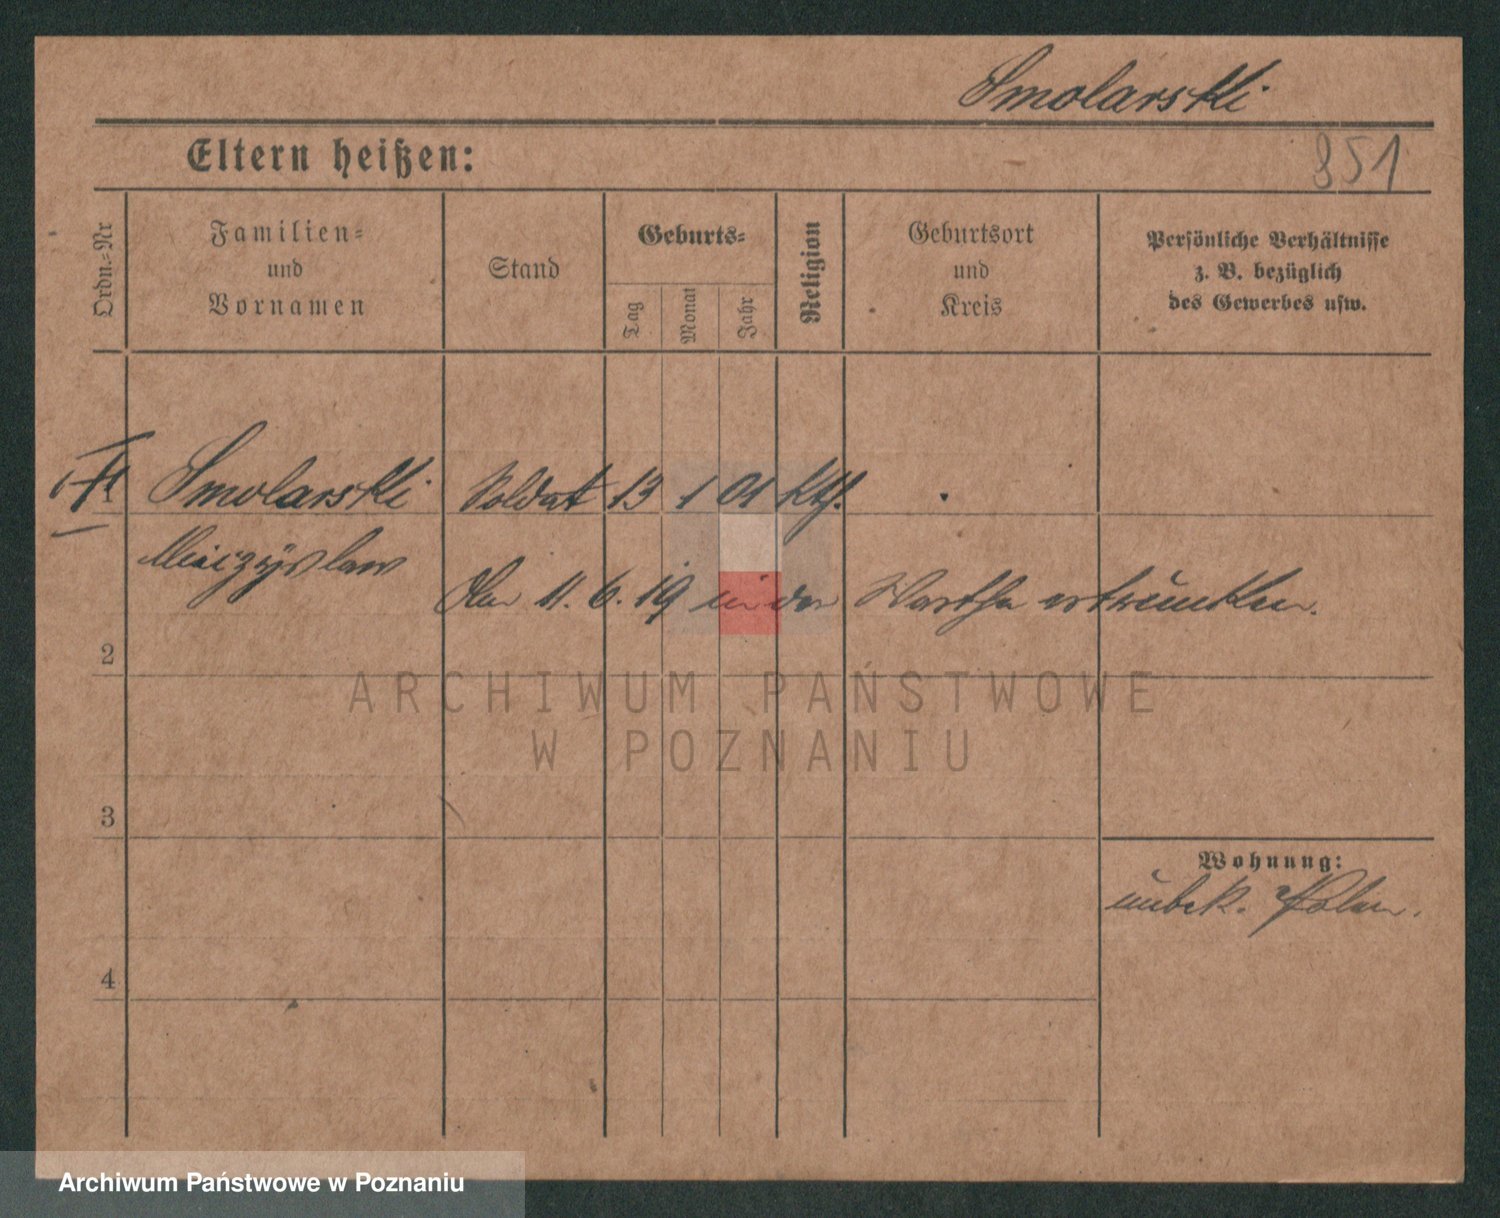 Smolarski
Eltern heißen:
851
Ordn.-Nr
Familien-
und
Vornamen
Stand
Geburts-
Tag
Monat
Jahr
Religion
Geburtsort
und
Kreis
Persönliche Verhältnisse
z. B. bezüglich
des Gewerbes usw.
Smolarski Soldat 13 1 01 Kth.
Mieczyslaw
Am 11. 6. 19 in der Warthe ertrunken.
2
ARCHIWUM PAŃSTWOWE
W POZNANIU
3
Wohnung:
unbek. Polen.
4
Archiwum Państwowe w Poznaniu